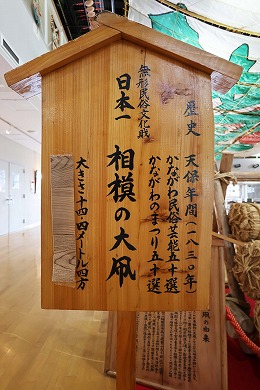 歴史 天保年間(一八三〇年)
かながわ民俗芸能五十選
かながわのまつり五十選
無形民俗文化財
相模の大凧
日本一
大きさ十四・四メートル四方
凧の由来